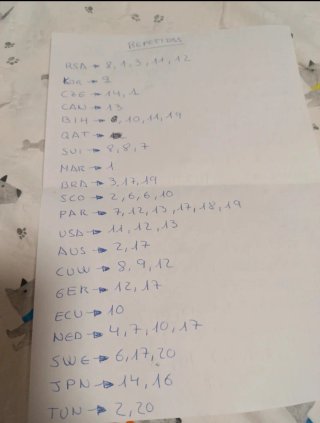 REPETIDOS
RSA → 8, 1, 3, 11, 12
KOR → 8
CZE → 14, 1
CAN → 13
BIH → 10, 11, 19
QAT →
SUI → 8, 8, 7
MAR → 1
BRA → 3, 17, 19
SCO → 2, 6, 6, 10
PAR → 7, 12, 13, 17, 18, 19
USA → 11, 12, 13
AUS → 2, 17
CUW → 8, 9, 12
GER → 12, 17
ECU → 10
NED → 4, 7, 10, 17
SWE → 6, 17, 20
JPN → 14, 16
TUN → 2, 20